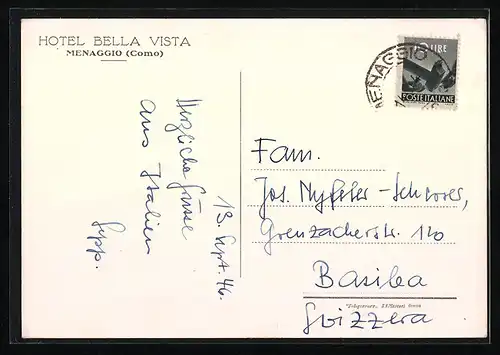 HOTEL BELLA VISTA
MENAGGIO (Como)
MENAGGIO
LIRE
POSTE ITALIANE
13. Sept. 46.
Herzliche Grüsse
aus Italien
Sepp.
Fam.
Jos.
Grenzacherstr. 120
Basilea
Svizzera